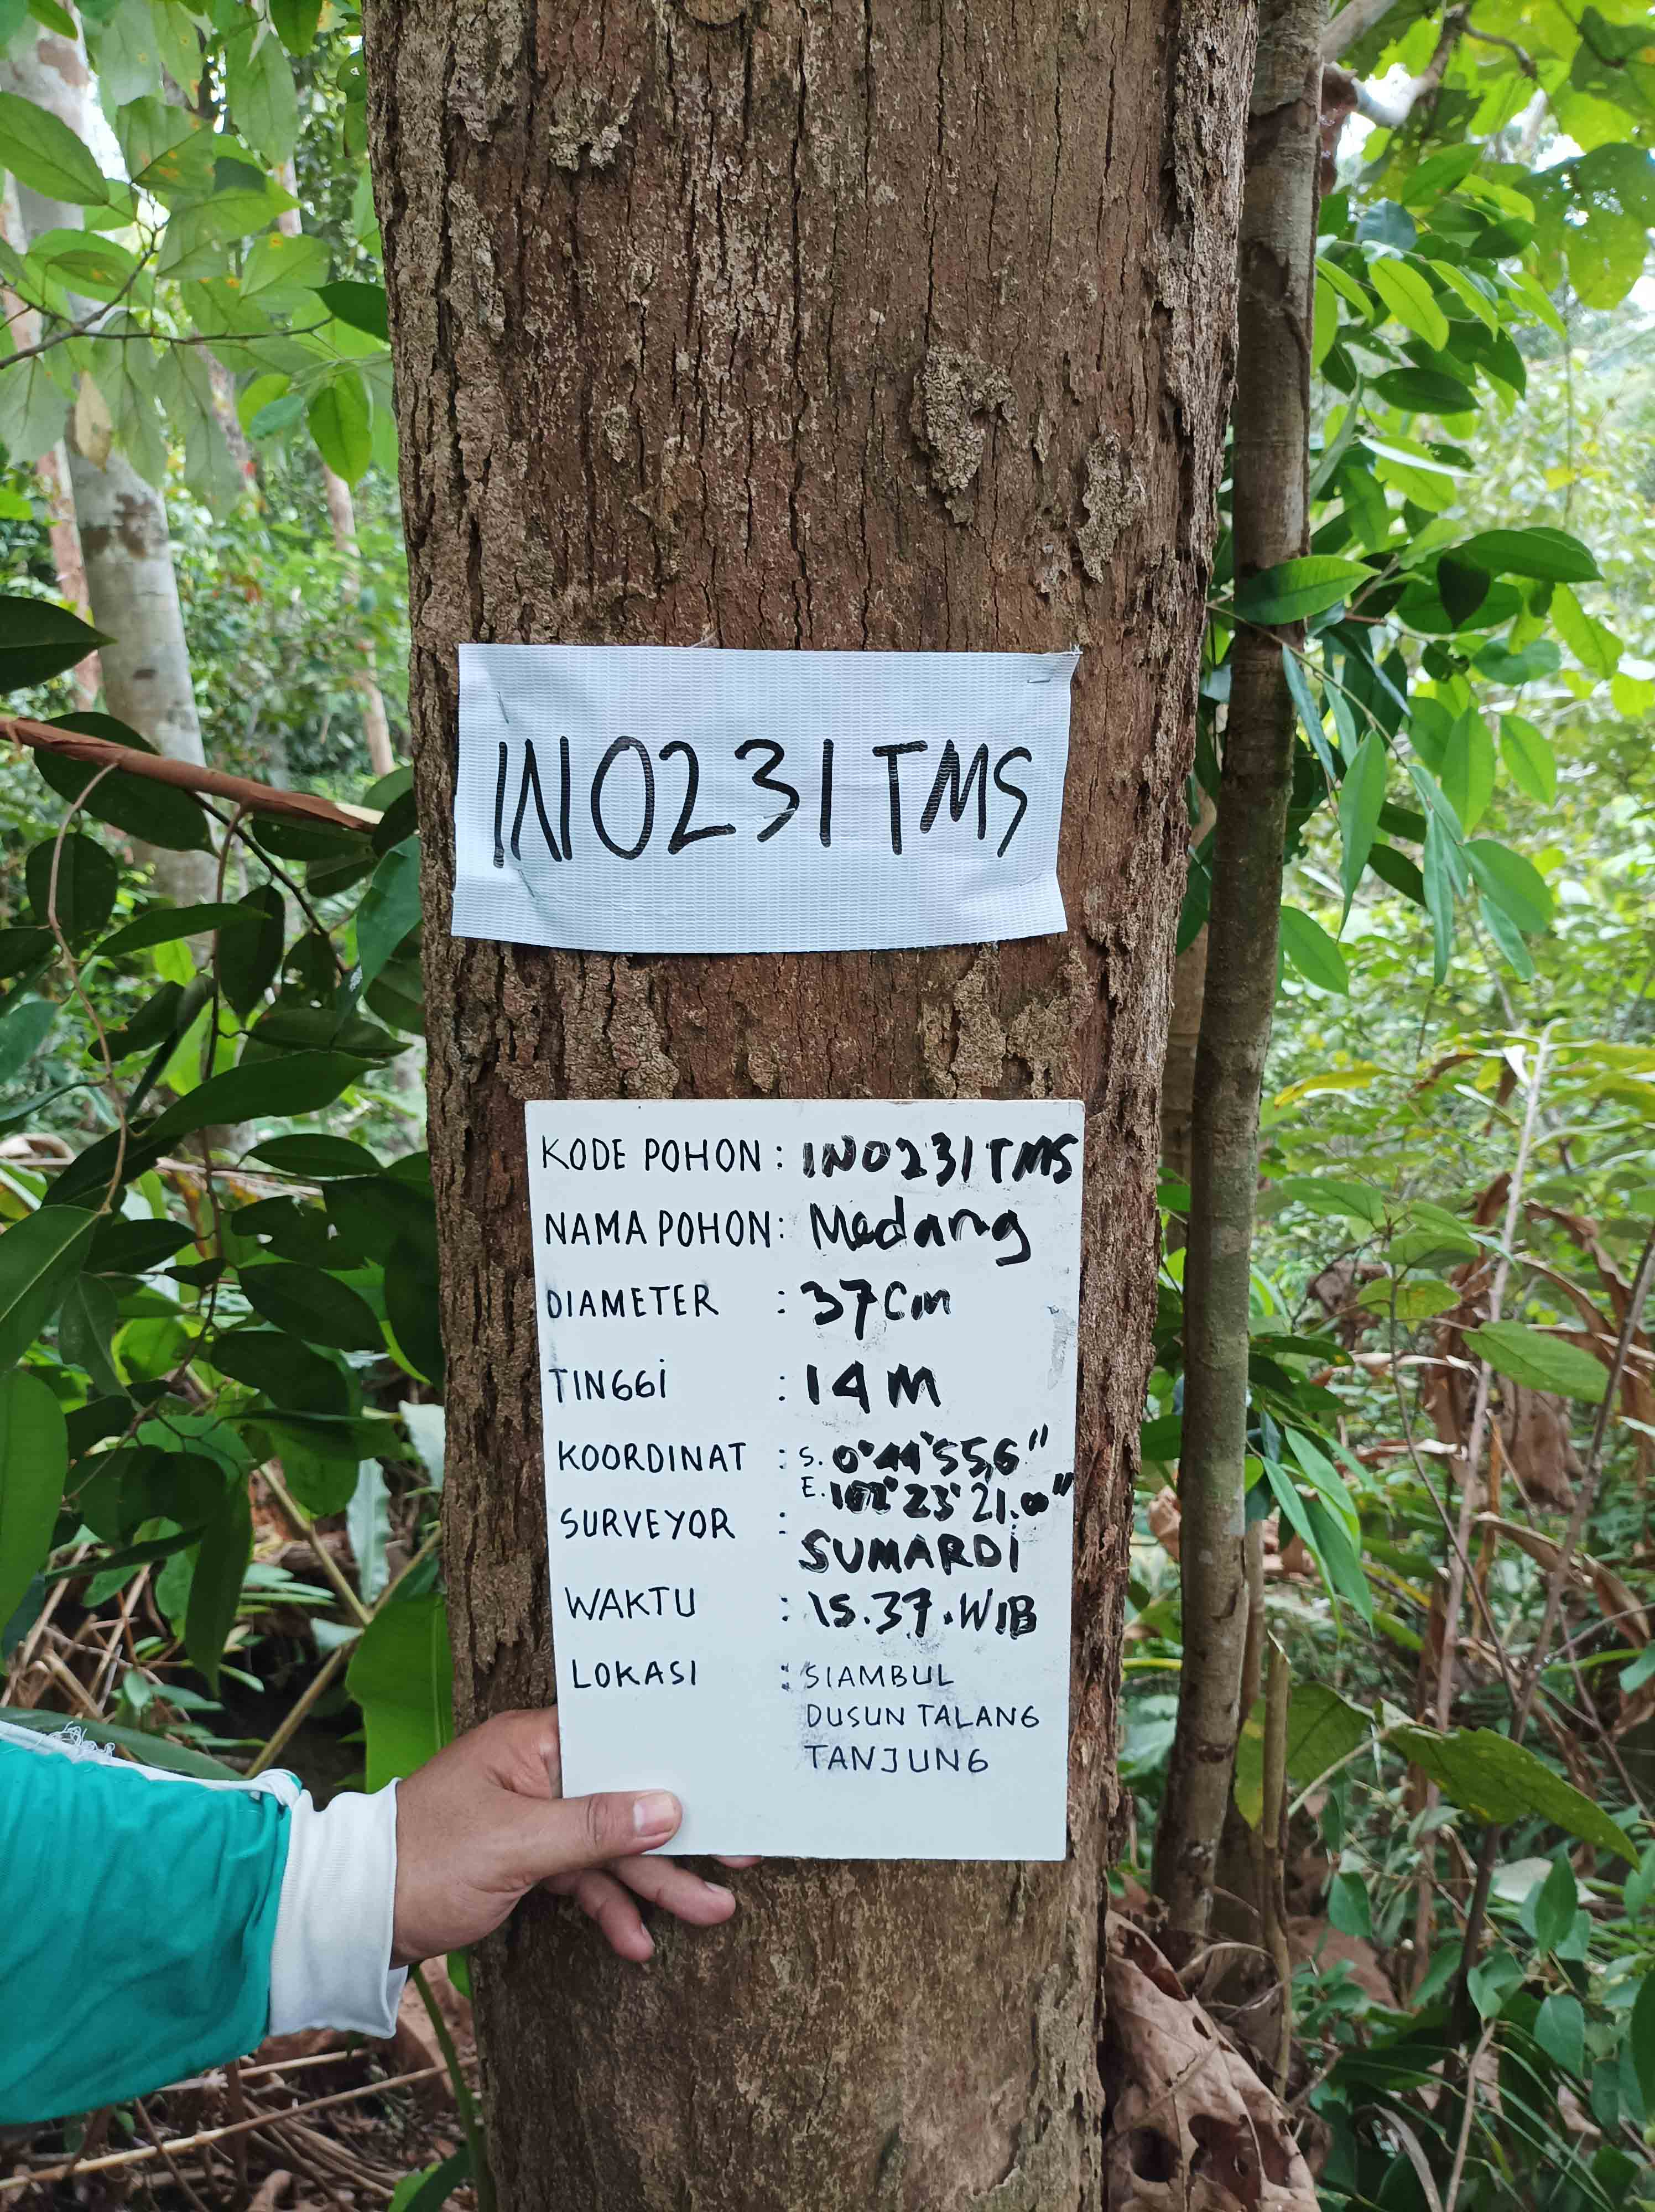 IN0231TMS
KODE POHON : IN0231TMS
NAMA POHON : Medang
DIAMETER : 37Cm
TINGGi : 14 M
KOORDINAT : S. 0°44'55,6"
E. 102°23'21.0"
SURVEYOR : SUMARDi
WAKTU : 15.37.WIB
LOKASI : SIAMBUL
DUSUN TALANG
TANJUNG